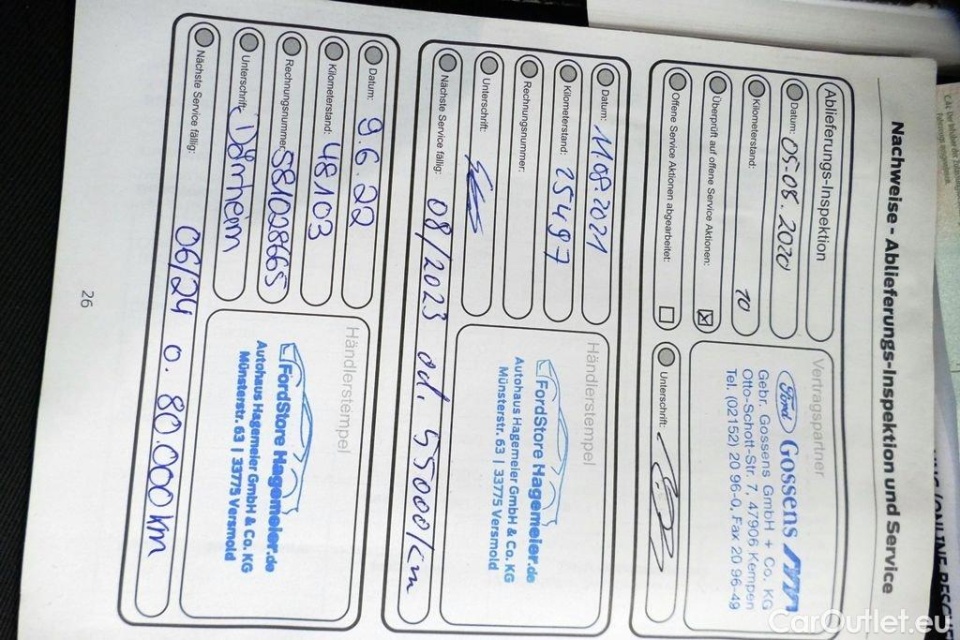 Nachweise - Ablieferungs-Inspektion und Service
Ablieferungs-Inspektion
Datum: 05-08.2020
Kilometerstand: 10
Überprüft auf offene Service Aktionen: ☒
Offene Service Aktionen abgearbeitet: ☐
Vertragspartner
Ford Gossens
Gebr. Gossens GmbH + Co. KG
Otto-Schott-Str. 7, 47906 Kempen
Tel. (02152) 20 96-0, Fax 20 96-49
Unterschrift:
Datum: 11.08.2021
Kilometerstand: 25497
Rechnungsnummer:
Unterschrift:
Nächste Service fällig: 08/2023 od. 55000/km
Händlerstempel
FordStore Hagemeier.de
Autohaus Hagemeier GmbH & Co. KG
Münsterstr. 63 | 33775 Versmold
Datum: 9.6.22
Kilometerstand: 48103
Rechnungsnummer: 581028665
Unterschrift: Dörnheim
Nächste Service fällig: 06/24 o. 80.000km
Händlerstempel
FordStore Hagemeier.de
Autohaus Hagemeier GmbH & Co. KG
Münsterstr. 63 | 33775 Versmold
26
CarOutlet.eu